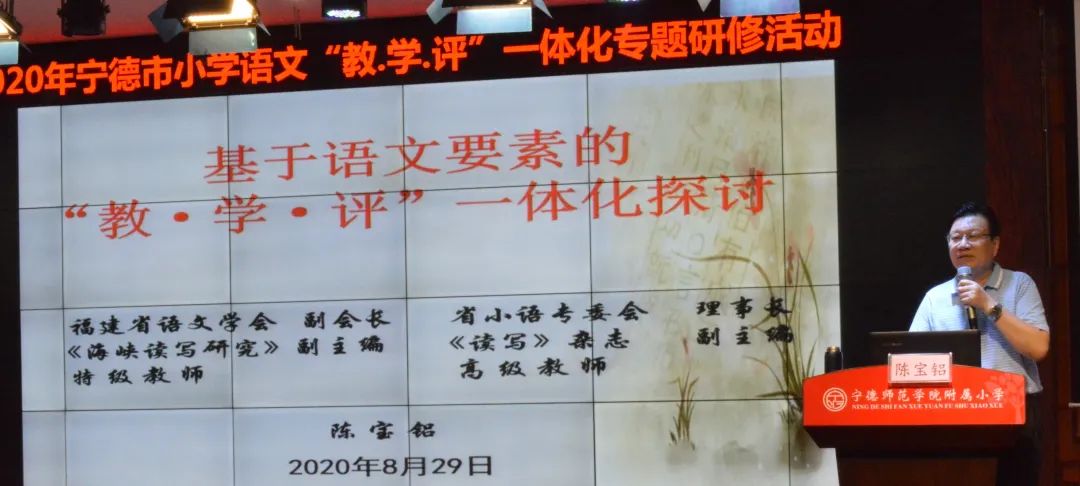 020年宁德市小学语文“教.学.评”一体化专题研修活动
基于语文要素的
“教·学·评”一体化探讨
福建省语文学会 副会长
《海峡读写研究》副主编
特级教师
省小语专委会 理事长
《读写》杂志 副主编
高级教师
陈宝铝
2020年8月29日
陈宝铝
宁德师范学院附属小学
NING DE SHI FAN XUE YUAN FU SHU XIAO XUE